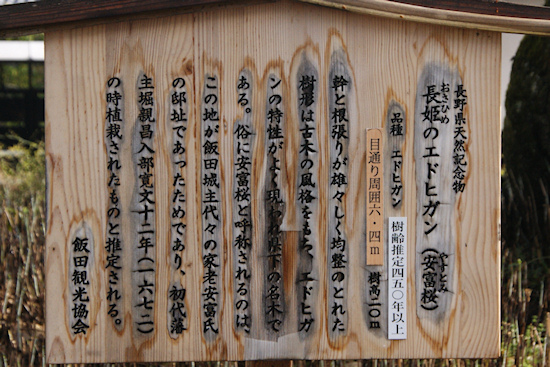 長野県天然記念物
おさひめ
長姫のエドヒガン（安富桜）
やすとみ
品種 エドヒガン
樹齢推定四五〇年以上
目通り周囲六・四m
樹高二〇m
幹と根張りが雄々しく均整のとれた
樹形は古木の風格をもち、エドヒガ
ンの特性がよく現われ県下の名木で
ある。俗に安富桜と呼称されるのは、
この地が飯田城主代々の家老安富氏
の邸址であったためであり、初代藩
主堀親昌入部寛文十二年（一六七二）
の時植栽されたものと推定される。
飯田観光協会